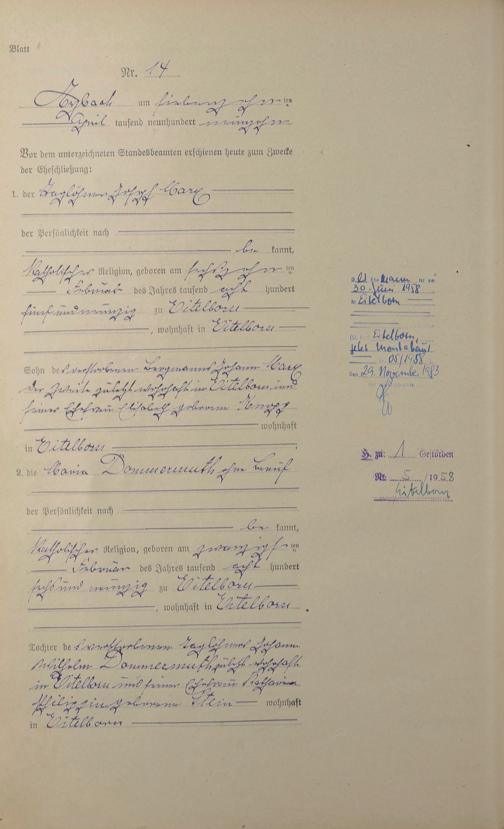 Blatt
Nr. 14
Arzbach am siebenzehnten
April tausend neunhundert neunzehn
Vor dem unterzeichneten Standesbeamten erschienen heute zum Zwecke
der Eheschließung:
1. der Taglöhner Joseph Marx
der Persönlichkeit nach
be kannt,
katholischer Religion, geboren am sechszehnten
Februar des Jahres tausend acht hundert
fünfundneunzig zu Eitelborn
, wohnhaft in Eitelborn
Sohn des verstorbenen Bergmanns Johann Marx
der Zweite zuletzt wohnhaft in Eitelborn und
seiner Ehefrau Elisabeth geborene Knopp
wohnhaft
in Eitelborn
2. die Maria Dommermuth, ohne Beruf
der Persönlichkeit nach
be kannt,
katholischer Religion, geboren am zwanzigsten
Februar des Jahres tausend acht hundert
sechsundneunzig zu Eitelborn
, wohnhaft in Eitelborn
Tochter des verstorbenen Taglöhners Johann
Wilhelm Dommermuth zuletzt wohnhaft
in Eitelborn und seiner Ehefrau Katharina
Philippine geborene Stein wohnhaft
in Eitelborn
30. Juni 1958
Eitelborn
Eitelborn,
jetzt Montabaur
05/1958
den 29. November 1983
H. zu: 1 Gestorben
Nr. 5 /1958
Eitelborn